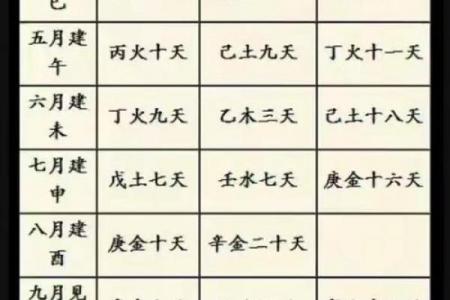 巳
五月建午 丙火十天 己土九天 丁火十一天
六月建未 丁火九天 乙木三天 己土十八天
七月建申 戊土七天 壬水七天 庚金十六天
八月建酉 庚金十天 辛金二十天
九月见